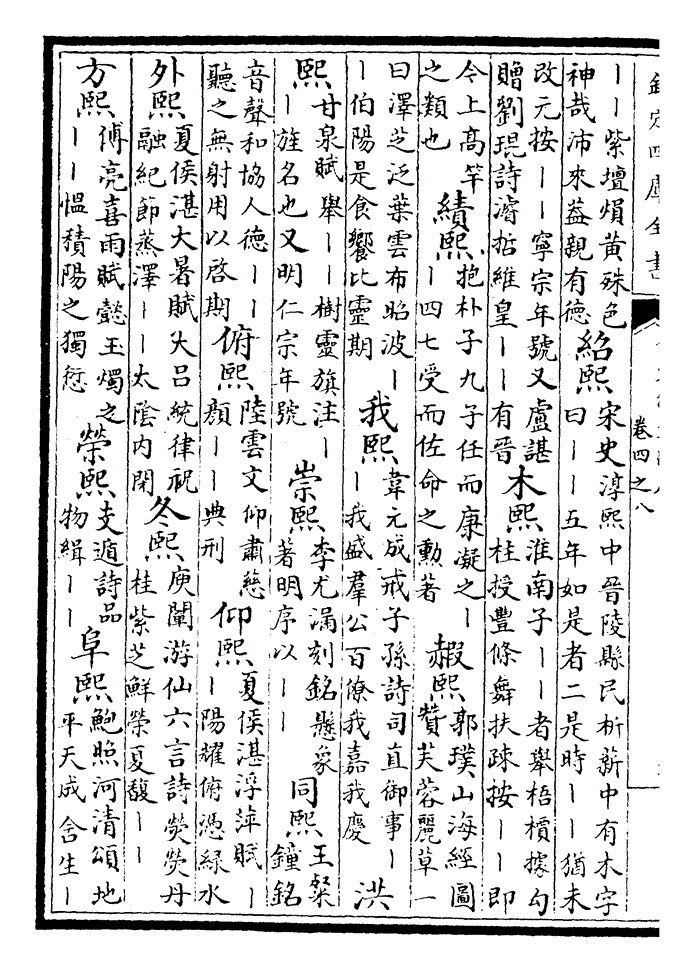 欽定四庫全書
卷四之八
——紫壇熉黄殊色
神哉沛來益親有德
紹熙
宋史淳熙中晉陵縣民析薪中有木字
曰——五年如是者二是時——猶未
改元按——寧宗年號又盧諶
贈劉琨詩濬哲維皇——有晉
木熙
淮南子——者舉梧檟據勾
柱授豐條舞扶疎按——即
今上高竿
之類也
績熙
抱朴子九子任而康凝之—
—四七受而佐命之勳著
赮熙
郭璞山海經圖
贊芙蓉麗草一
曰澤芝泛葉雲布昭波—
—伯陽是食饗比靈期
我熙
韋元成戒子孫詩司直御事—
—我盛羣公百僚我嘉我慶
洪
熙
甘泉賦舉——樹靈旗注—
—旌名也又明仁宗年號
崇熙
李尤漏刻銘懸象
著明序以——
同熙
王粲
鐘銘
音聲和協人德——
聽之無射用以啓期
俯熙
陸雲文仰肅慈
顔——典刑
仰熙
夏侯湛浮萍賦—
—陽耀俯憑綠水
外熙
夏侯湛大暑賦大吕統律祝
融紀節蒸澤——太陰内閉
冬熙
庾闡游仙六言詩熒熒丹
桂紫芝鮮榮夏馥——
方熙
傅亮喜雨賦懿玉燭之
——愠積陽之獨愆
榮熙
支遁詩品
物緝——
阜熙
鮑照河清頌地
平天成舍生—